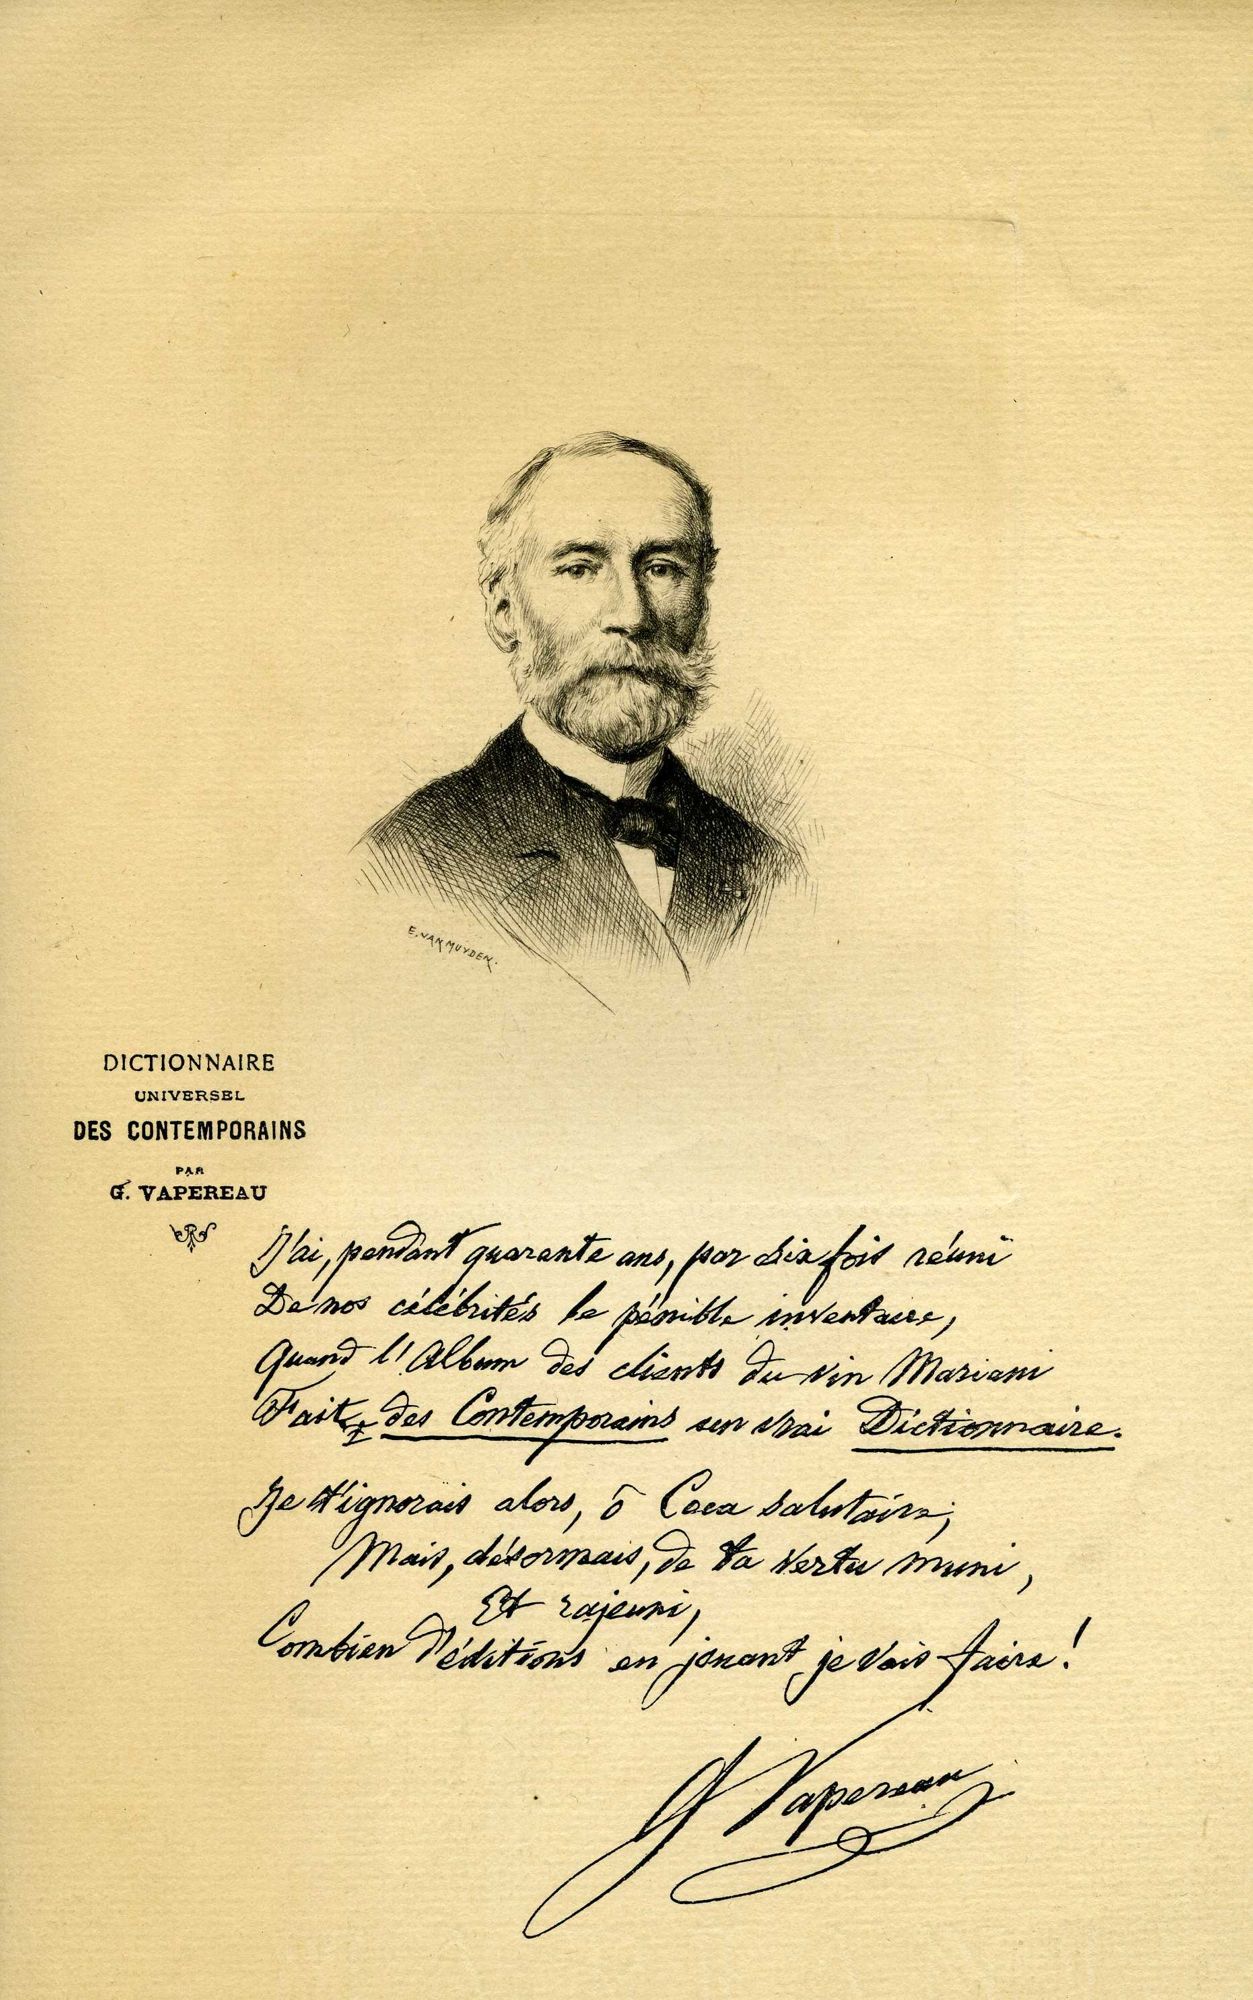 E. VAN MUYDEN.
DICTIONNAIRE
UNIVERSEL
DES CONTEMPORAINS
PAR
G. VAPEREAU
J'ai, pendant quarante ans, par six fois réuni
De nos célébrités le pénible inventaire,
Quand l'Album des clients du vin Mariani
Fait des Contemporains un vrai Dictionnaire.
Je t'ignorais alors, ô Coca salutaire;
Mais, désormais, de ta vertu muni,
Et rajeuni,
Combien d'éditions en jouant je vais faire!
G Vapereau